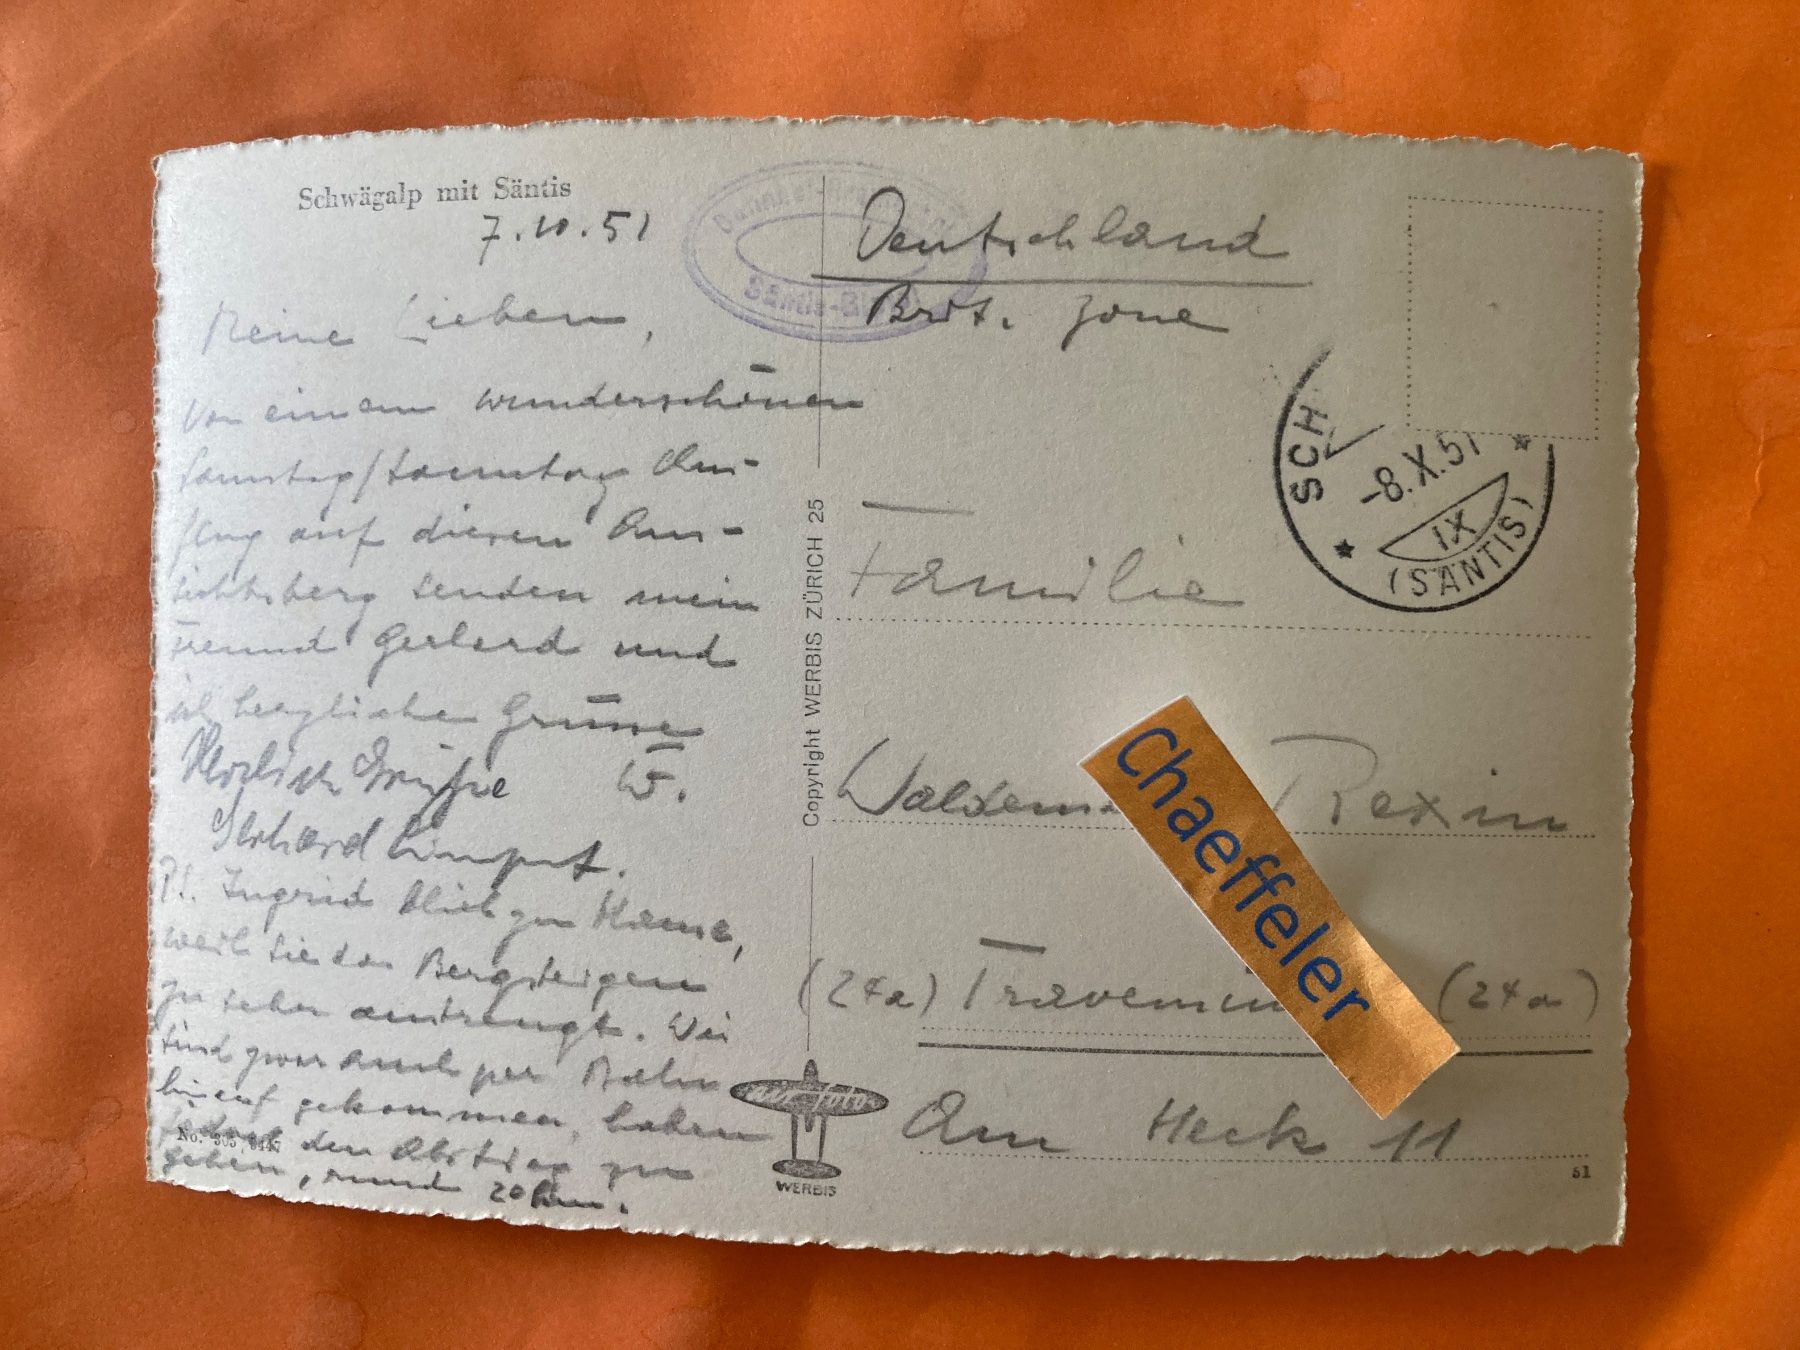 Schwägalp mit Säntis
7.10.51
Meine Lieben,
von einem wunderschönen
Samstag/Sonntag Aus-
flug auf diesen Aus-
sichtsberg senden mein
Freund Gerhard und
ich herzlichen Grüsse
W.
Herzlich Grüße
Gerhard
PS. Ingrid blieb zu Hause,
weil sie das Bergsteigen
zu sehr anstrengt. Wir
sind zwar auch per Bahn
hinauf gekommen, haben
jedoch den Abstieg zu
gehen, rund 20 km.
No. 305
Säntis-
Deutschland
Brit. Zone
Copyright WERBIS ZÜRICH 25
SCH
-8.X.51
IX
(SÄNTIS)
Familie
Waldemar Rexin
Chaeffeler
(24a) Travemün (24a)
Am Heck 11
air foto
WERBIS
51